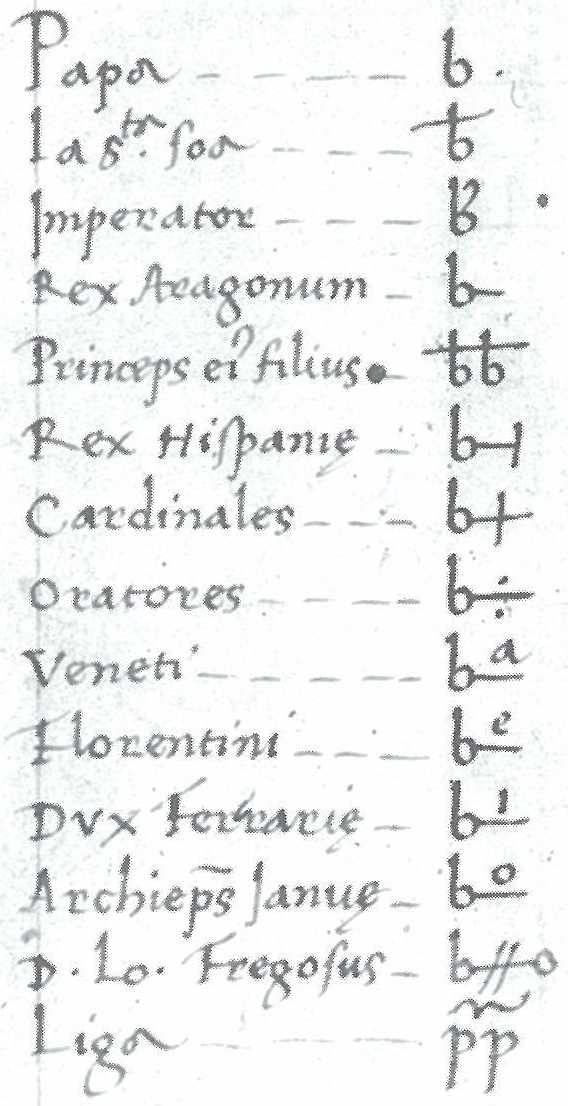 Papa - - - - b.
La S.ta Soa - - - b
Imperator - - - b
Rex Aragonum - b
Princeps ei9 filius - bb
Rex Hispanie - b
Cardinales - - - b
Oratores - - - - b
Veneti - - - - b a
Florentini - - - b e
Dux Ferrarie - b i
Archiep̃s Janue - b o
D. Lo. Fregosus - b
Liga - - - - p̃p